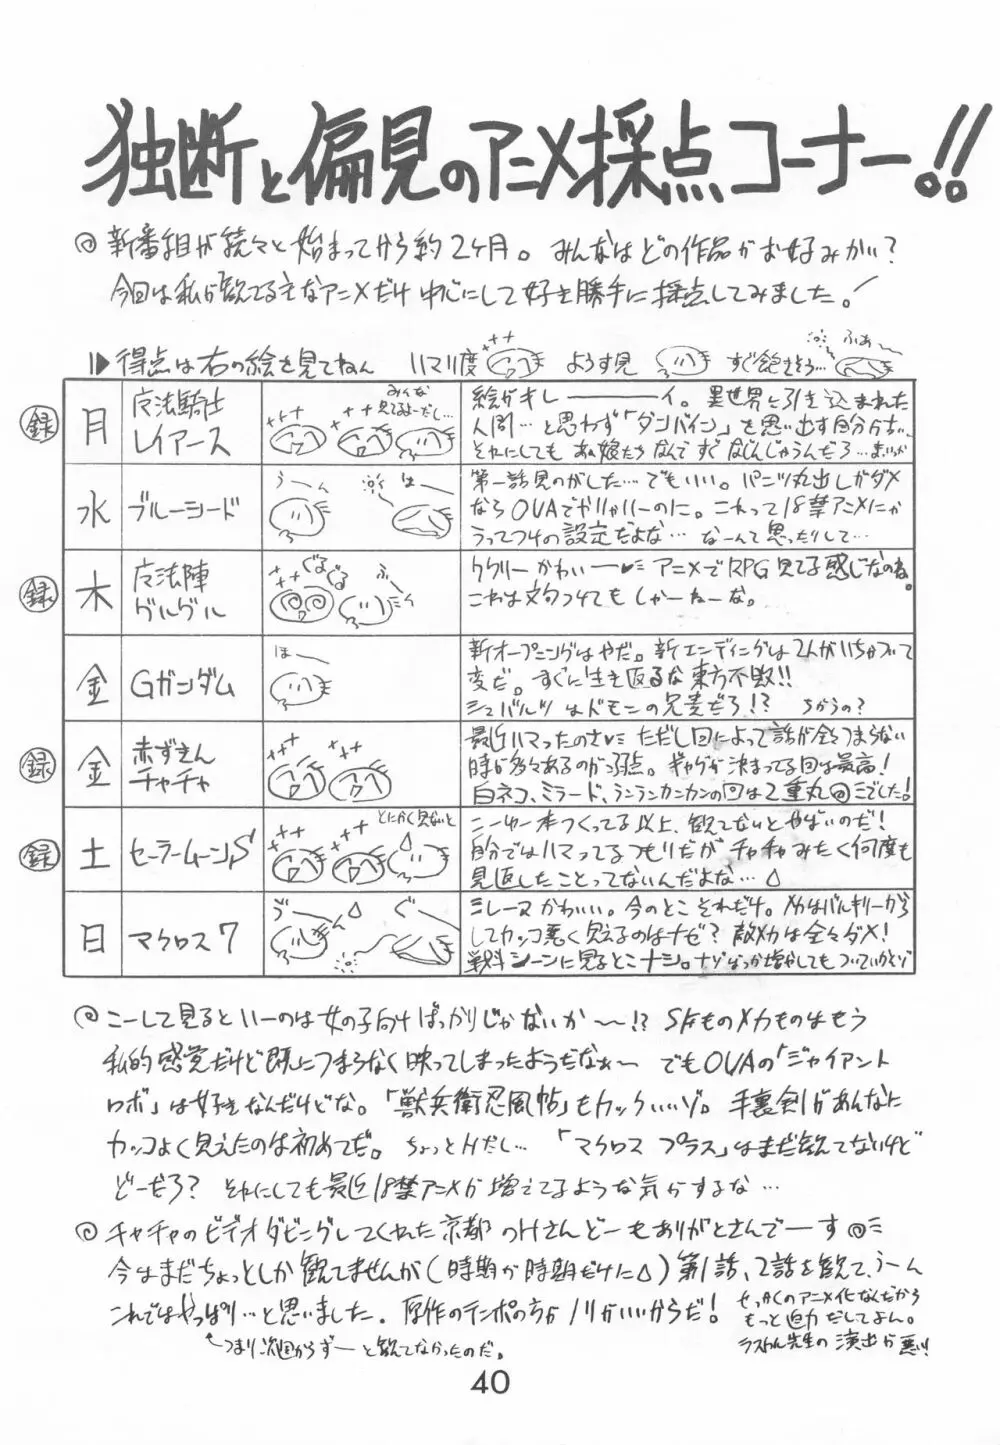 独断と偏見のアニメ採点コーナー!!
◎新番組が続々と始まってから約2ヶ月。みんなはどの作品がお好みかい?
今回は私が観てる主なアニメだけ中心にして好き勝手に採点してみました!
得点は右の絵を見てねん ハマリ度 ようす見 すぐ飽きそう… ふぁ〜
録 月 魔法騎士レイアース
みんな見てるよーだし…
絵がキレーーーイ。異世界に引き込まれた
人間…と思わず「ダンバイン」を思い出す自分が古い。
それにしてもあの娘たちなんですぐなじんじゃうんだろ…まいっか
水 ブルーシード
うーん はー
第一話見のがした…でもいい。パンツ丸出しがダメ
ならOVAでやりゃいーのに。これって18禁アニメにか
うってつけの設定だよな…なーんて思ったりして…
録 木 魔法陣グルグル
ぐるぐる ふー
ククリーかわいー♥ アニメでRPG見てる感じなのね。
これは文句つけてもしゃーねーな。
金 Gガンダム
ほー
新オープニングはやだ。新エンディングは2人がいちゃついて
変だ。すぐに生き返るな東方不敗!!
シュバルツはドモンの兄貴だろ!? ちがうの?
録 金 赤ずきんチャチャ
最近ハマったのさ♥ ただし回によって話が全々つまらない
時が多々あるのが弱点。ギャグが決まってる回は最高!
白ネコ、ミラード、ランランカンカンの回は2重丸◎ミでした!
録 土 セーラームーンS
とにかく見ないと
こーゆー本つくってる以上、観てないとやばいのだ!
自分ではハマってるつもりだがチャチャみたく何度も
見返したことってないんだよな…
日 マクロス7
ぶー ぐー
ミレーヌかわいい。今のとこそれだけ。メカはバルキリーからして
カッコ悪く見えるのはナゼ? 敵メカは全々ダメ!
戦斗シーンに見るとこナシ。ナゾばっか増やしてもついていかんぞ
◎こーして見るといーのは女の子向けばっかりじゃないか〜!? SFものメカものはもう
私的感覚だけど既につまらなく映ってしまったようだなぁ〜 でもOVAの「ジャイアント
ロボ」は好きなんだけどな。「獣兵衛忍風帖」もカッケいいゾ。手裏剣があんなに
カッコよく見えたのは初めてだ。ちょっとHだし…「マクロス プラス」はまだ観てないけど
どーだろ? それにしても最近18禁アニメが増えてるような気がするな…
◎チャチャのビデオダビングしてくれた京都のHさんどーもありがとさんでーす◎ミ
今はまだちょっとしか観てませんが(時期が時期だけに)第1話、2話を観て、うーん
これではやっぱり…と思いました。原作のテンポの方がノリがいいからだ!
つまり次週からずーと観てなかったのだ。
せっかくのアニメ化なんだから
もっと迫力だしてよん。
ラスカル先生の演出が悪い!
40